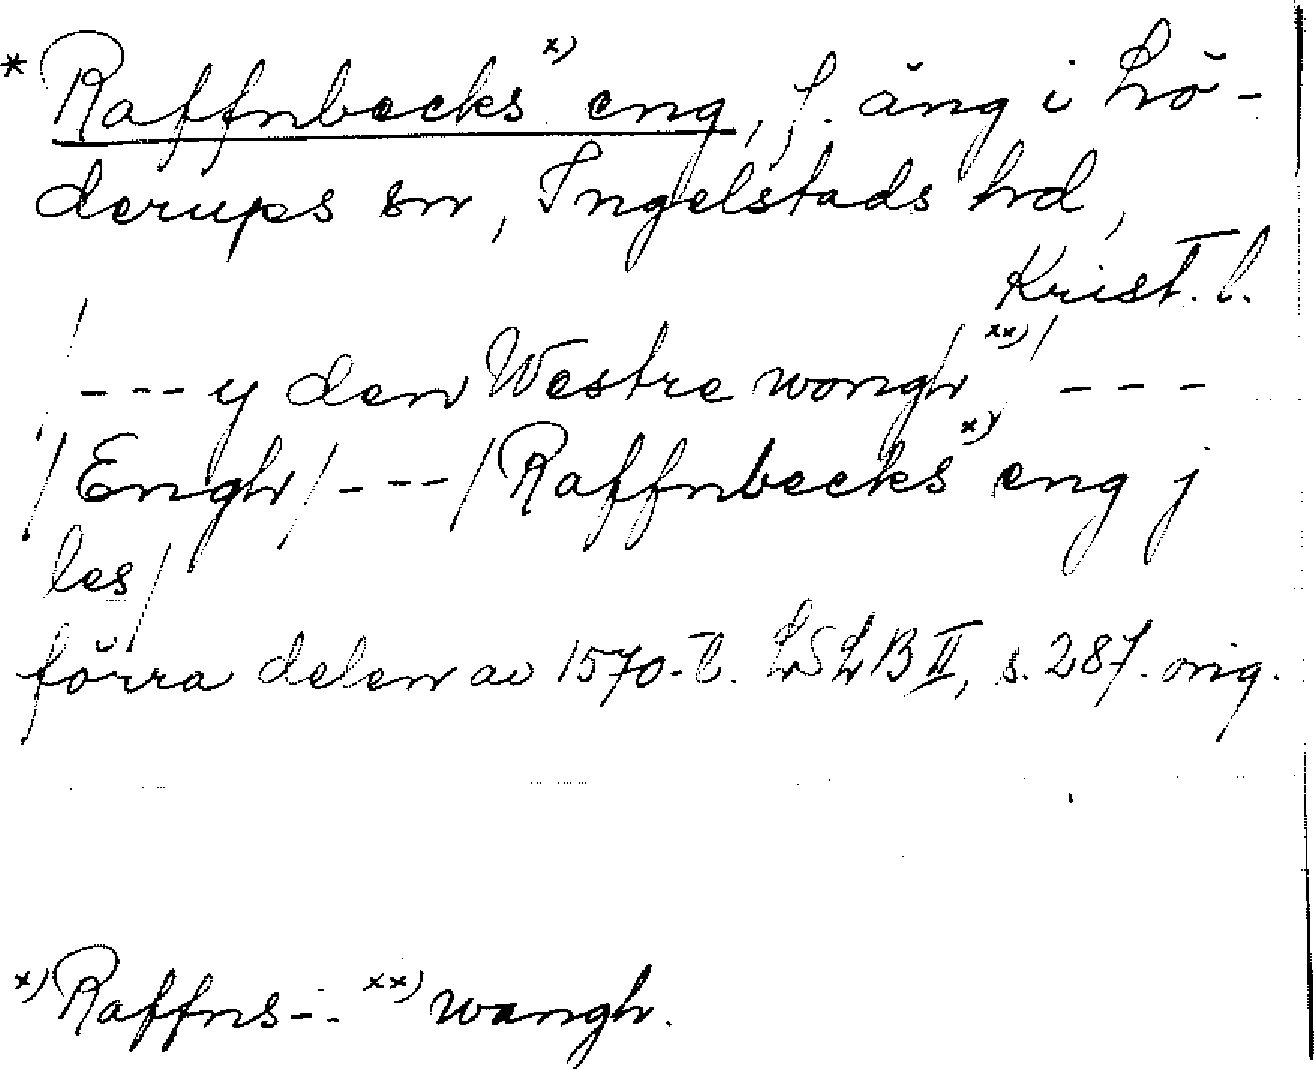 * Raffnbecks x) eng, f. äng i Lö-
derups sn, Ingelstads hd,
Krist. l.
/ --- y den Westre wongh xx) / ---
/ Engh / --- / Raffnbecks x) eng j
les /
förra delen av 1570-t. LSLB II, s. 287. orig.
x) Raffns-. xx) wangh.